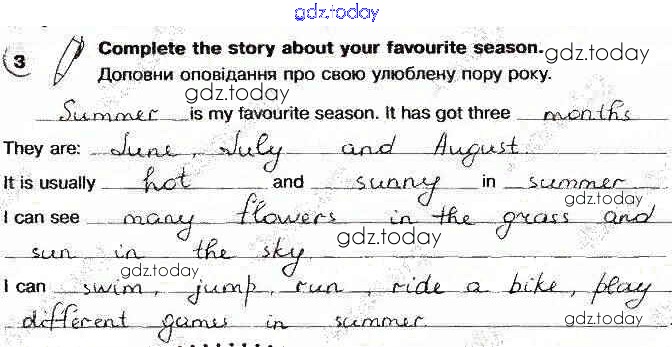 gdz.today
3 Complete the story about your favourite season. gdz.today
Доповни оповідання про свою улюблену пору року.
gdz.today
Summer is my favourite season. It has got three months
They are: June, July and August.
It is usually hot and sunny in summer
gdz.today
I can see many flowers in the grass and
sun in the sky.
gdz.today
gdz.today
I can swim, jump, run, ride a bike, play
different games in summer.
gdz.today